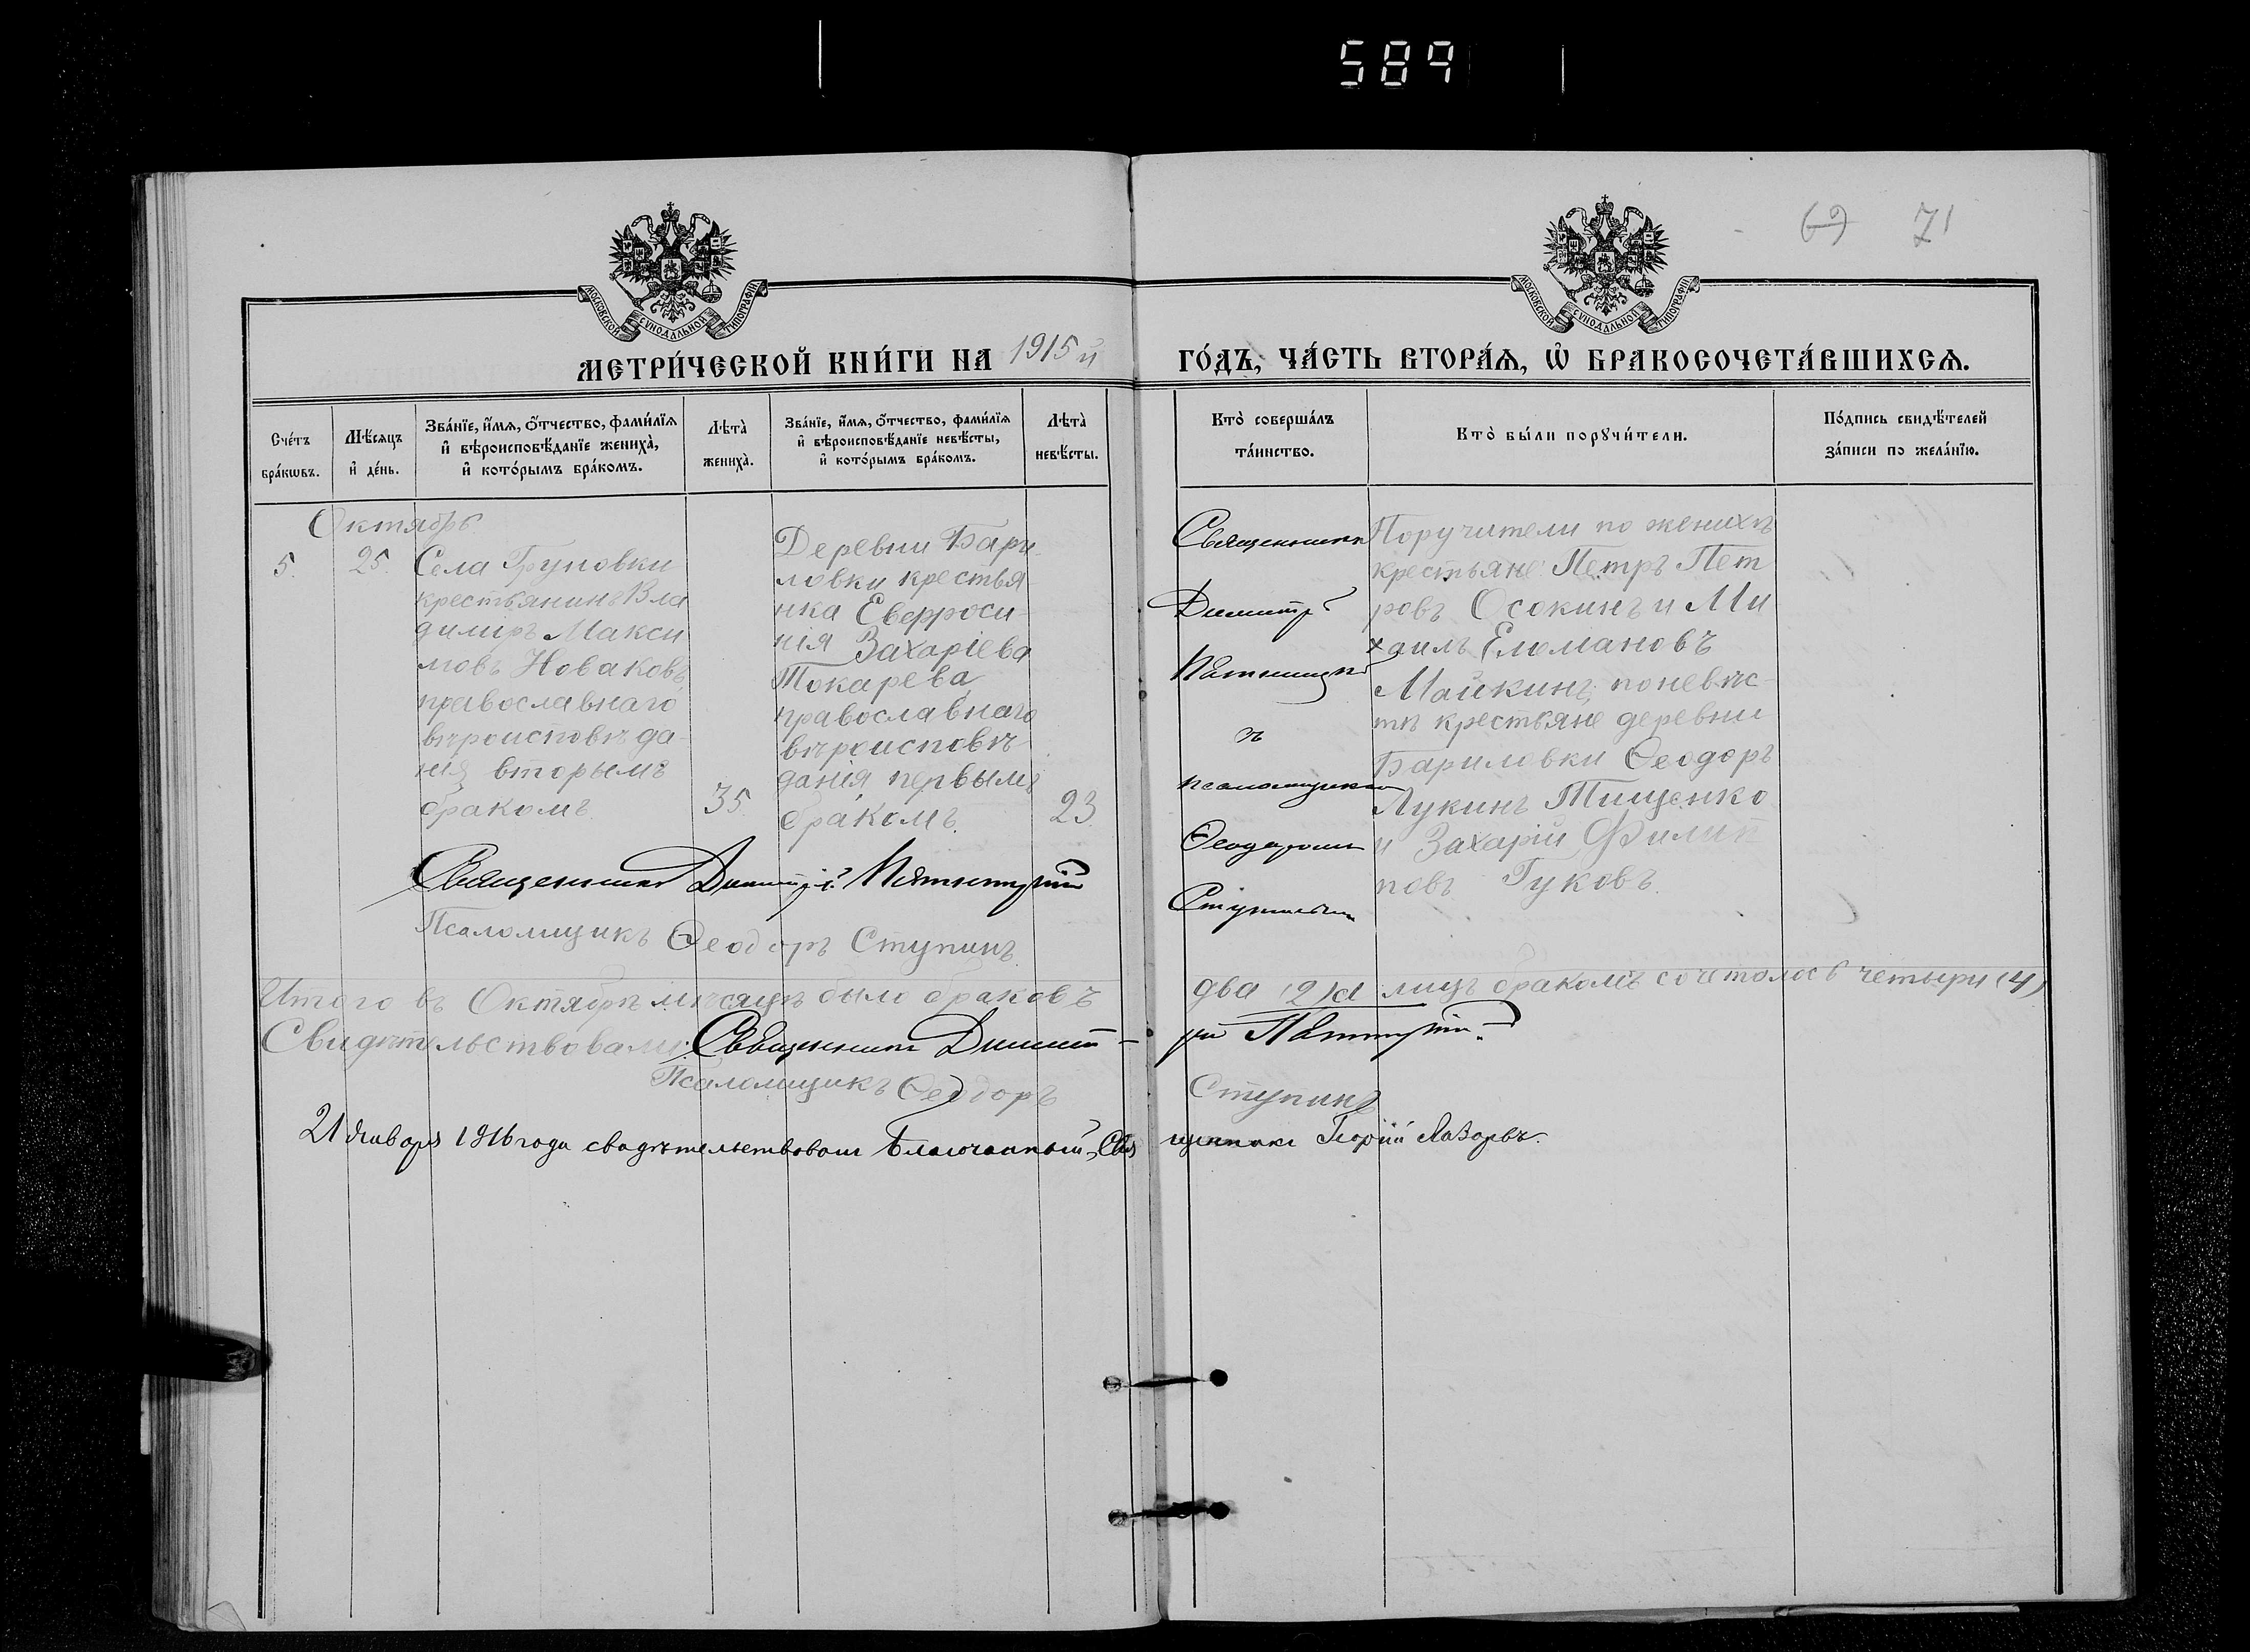 589
69 71
МОСКОВСКОЙ СУНОДАЛЬНОЙ ТИПОГРАФІИ
МОСКОВСКОЙ СУНОДАЛЬНОЙ ТИПОГРАФІИ
МЕТРИ́ЧЕСКОЙ КНИ́ГИ НА 1915 й ГО́ДЪ, ЧА́СТЬ ВТОРА́Ѧ, Ѡ҆ БРАКОСОЧЕТА́ВШИХСѦ.
Сче́тъ
бра́кѡвъ.
Мѣ́сяцъ
и҆ де́нь.
Зва́нїе, и҆́мѧ, ѻ҆́тчество, фами́лїѧ
и҆ вѣроисповѣ́данїе жениха̀,
и҆ кото́рымъ бра́комъ.
Лѣта̀
жениха̀.
Зва́нїе, и҆́мѧ, ѻ҆́тчество, фами́лїѧ
и҆ вѣроисповѣ́данїе невѣ́сты,
и҆ кото́рымъ бра́комъ.
Лѣта̀
невѣ́сты.
Кто̀ соверша́лъ
та́инство.
Кто̀ бы́ли порꙋчи́тели.
По́дпись свидѣ́телей
за́писи по жела́нїю.
Октябрь
5. 25.
Села Груновки
крестьянинъ Вла
димiръ Макси
мовъ Новаковъ
православнаго
вѣроисповѣда-
нiя вторымъ
бракомъ.
35.
Деревни Бари
ловки крестья
нка Еверроси-
нiя Захарiева
Токарева
православнаго
вѣроисповѣ-
данiя первымъ
бракомъ.
23
Священникъ
Димитрiй
Пятницкiй
съ
псаломщикомъ
Ѳеодоромъ
Ступинымъ
Поручители по женихѣ
крестьяне Петръ Пет
ровъ Осокинъ и Ми
хаилъ Еломановъ
Майкинъ, по невѣс-
тѣ крестьяне деревни
Бариловки Ѳеодоръ
Лукинъ Тищенко
и Захарiй Филип
повъ Гуковъ.
Священникъ Димитрiй Пятницкiй
Псаломщикъ Ѳеодоръ Ступинъ
Итого въ Октябрѣ мѣсяцѣ было браковъ два (2) а лицъ бракомъ сочеталось четыри (4)
Свидѣтельствовали: Священникъ Димит-рiй Пятницкiй
Псаломщикъ Ѳеодоръ Ступинъ
21 Января 1916 года свидѣтельствовалъ Благочинный, Священникъ Георгiй Лазаревъ.